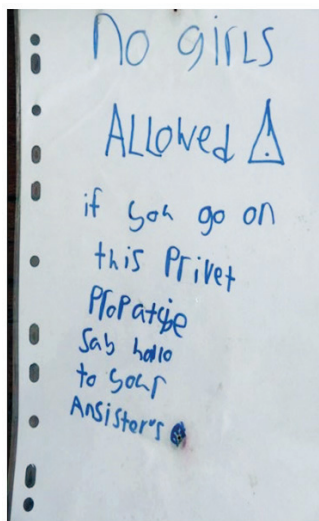 no girls
Allowed ⚠
if you go on
this Privet
Propatije
Say hallo
to your
Ansister's